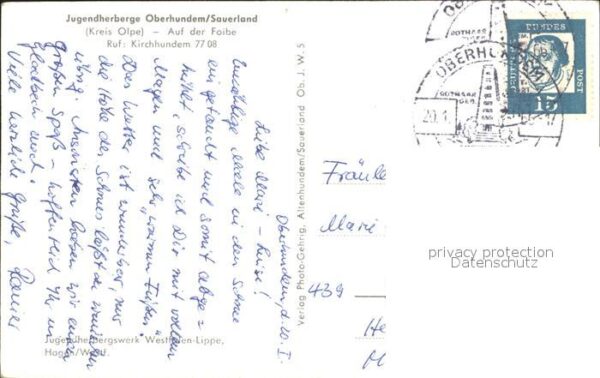 Jugendherberge Oberhundem/Sauerland
(Kreis Olpe) – Auf der Foibe
Ruf: Kirchhundem 77 08
Oberhundem, d. 20. I.
Liebe Marie-Luise!
Unzählige Male in den Schnee
eingetaucht und somit abge=
kühlt, schreibe ich Dir mit vollem
Magen und sehr „warmen Füßen“.
Das Wetter ist wunderbar, nur
die Höhe des Schnees läßt zu wünschen
übrig. Ansonsten haben wir einen
großen Spaß – hoffentlich Ihr in
Gladbeck auch.
Viele herzliche Grüße,
Rainer
Jugendherbergswerk Westfalen-Lippe,
Hagen/Westf.
Verlag Photo-Gehrig, Altenhundem/Sauerland Ob. J. W. 5
Fräule
Marie
439
He
DEUTSCHE
BUNDES
POST
15
OBERHUNDEM
ROTHAAR
GEB.
20.1.
privacy protection
Datenschutz